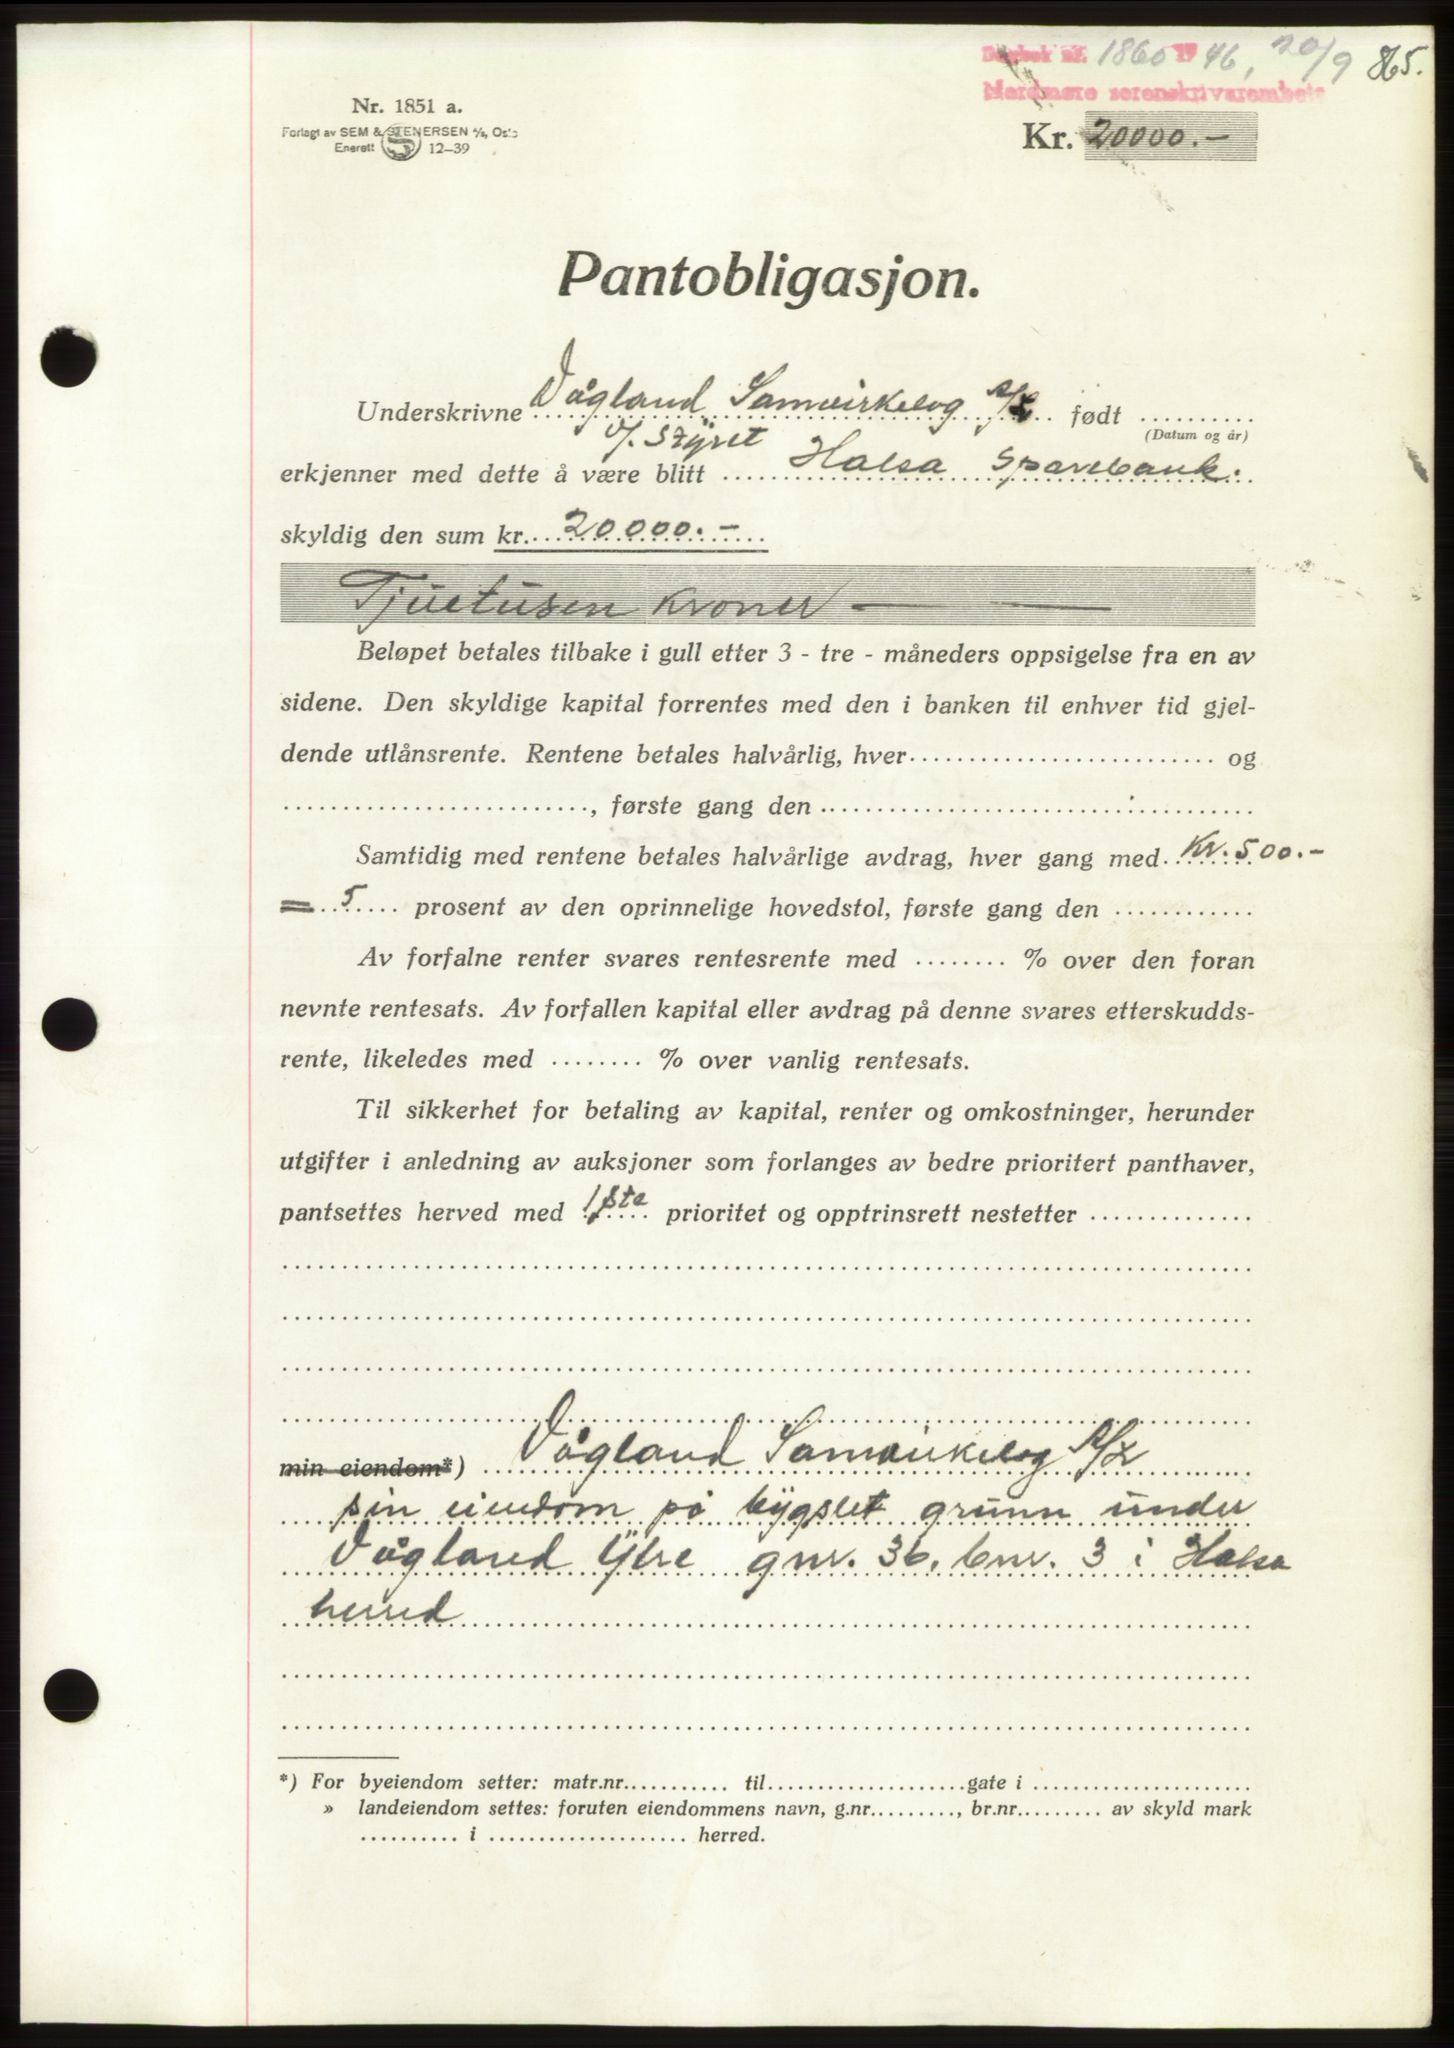 Dagbok nr. 1860 1946, 20/9 865.
Nordmøre sorenskrivarembete
Nr. 1851 a.
Forlagt av SEM & STENERSEN A/S, Oslo
Enerett 12–39
Kr. 20000.-
Pantobligasjon.
Underskrivne Vågland Samvirkelag A/L født
v/ Styret
(Datum og år)
erkjenner med dette å være blitt Halsa Sparebank.
skyldig den sum kr. 20000.-
Tjuetusen Kroner —
Beløpet betales tilbake i gull etter 3 - tre - måneders oppsigelse fra en av
sidene. Den skyldige kapital forrentes med den i banken til enhver tid gjel-
dende utlånsrente. Rentene betales halvårlig, hver og
, første gang den
Samtidig med rentene betales halvårlige avdrag, hver gang med Kr. 500.-
= 5 prosent av den oprinnelige hovedstol, første gang den
Av forfalne renter svares rentesrente med % over den foran
nevnte rentesats. Av forfallen kapital eller avdrag på denne svares etterskudds-
rente, likeledes med % over vanlig rentesats.
Til sikkerhet for betaling av kapital, renter og omkostninger, herunder
utgifter i anledning av auksjoner som forlanges av bedre prioritert panthaver,
pantsettes herved med 1ste prioritet og opptrinsrett nestetter
min eiendom*) Vågland Samvirkelag A/L
sin eiendom på bygslet grunn under
Vågland Ytre gnr. 36, bnr. 3 i Halsa
herred
*) For byeiendom setter: matr.nr. til gate i
» landeiendom settes: foruten eiendommens navn, g.nr. , br.nr. av skyld mark
i herred.